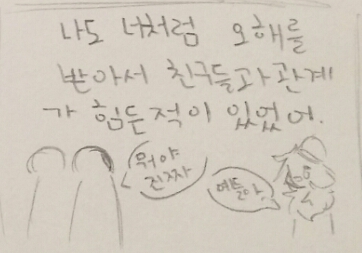 나도 너처럼 오해를
받아서 친구들과 관계
가 힘든적이 있었어.
뭐야
진짜
얘들아